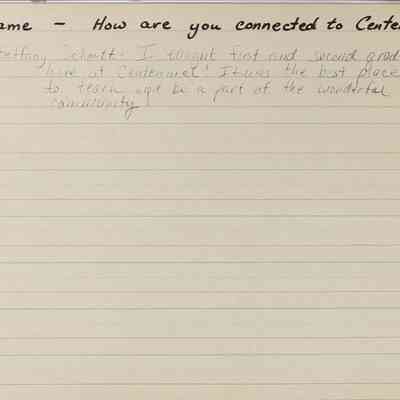 ame - How are you connected to Cente
I taught first and second grad
here at Centennial! It was the best place
to teach and be a part of the wonderful
community!